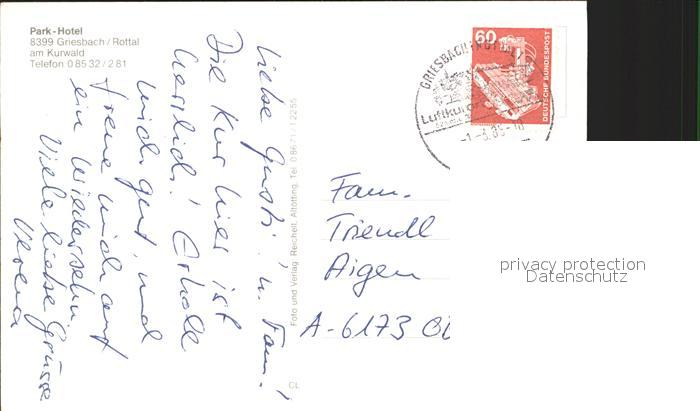 Park-Hotel
8399 Griesbach/Rottal
am Kurwald
Telefon 0 85 32 / 2 81
Liebe Gusti u. Fam.!
Die Kur hier ist
herrlich! Erhole
mich gut, und
freue mich auf
ein Wiedersehn
Viele liebe Grüsse
Verena
Foto und Verlag Reichelt, Altötting, Tel. 0 86 71 / 1 22 55
CL
60
DEUTSCHE BUNDESPOST
GRIESBACH
Luftkurort
Fam.
Triendl
Aigen
A-6173
privacy protection
Datenschutz